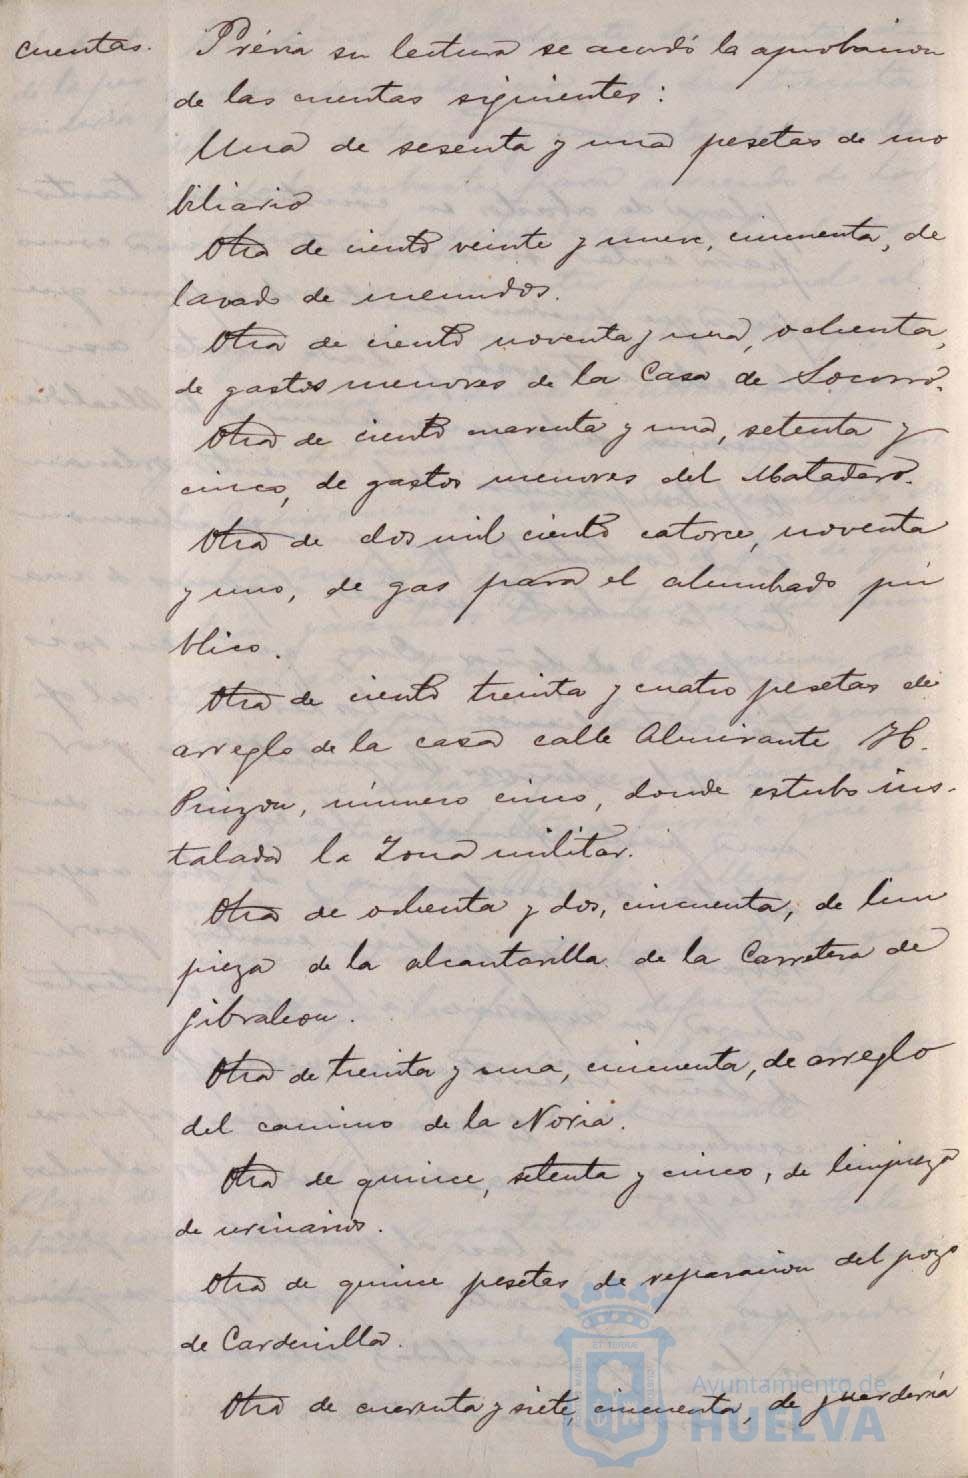 cuentas.
Prévia su lectura se acordó la aprobacion
de las cuentas siguientes:
Una de sesenta y una pesetas de mo
biliario
Otra de ciento veinte y nueve, cincuenta, de
lavado de menudos.
Otra de ciento noventa y una, ochenta,
de gastos menores de la Casa de Socorro.
Otra de ciento cuarenta y una, setenta y
cinco, de gastos menores del Matadero.
Otra de dos mil ciento catorce, noventa
y uno, de gas para el alumbrado pú
blico.
Otra de ciento treinta y cuatro pesetas de
arreglo de la casa calle Almirante H.
Pinzon, número cinco, donde estubo ins-
talada la Zona militar.
Otra de ochenta y dos, cincuenta, de lim
pieza de la alcantarilla de la Carretera de
Gibraleon.
Otra de treinta y una, cincuenta, de arreglo
del camino de la Noria.
Otra de quince, setenta y cinco, de limpieza
de urinarios.
Otra de quince pesetas de reparacion del pozo
de Cardenilla.
Otra de cuarenta y siete, cincuenta, de guardería
Ayuntamiento de
HUELVA